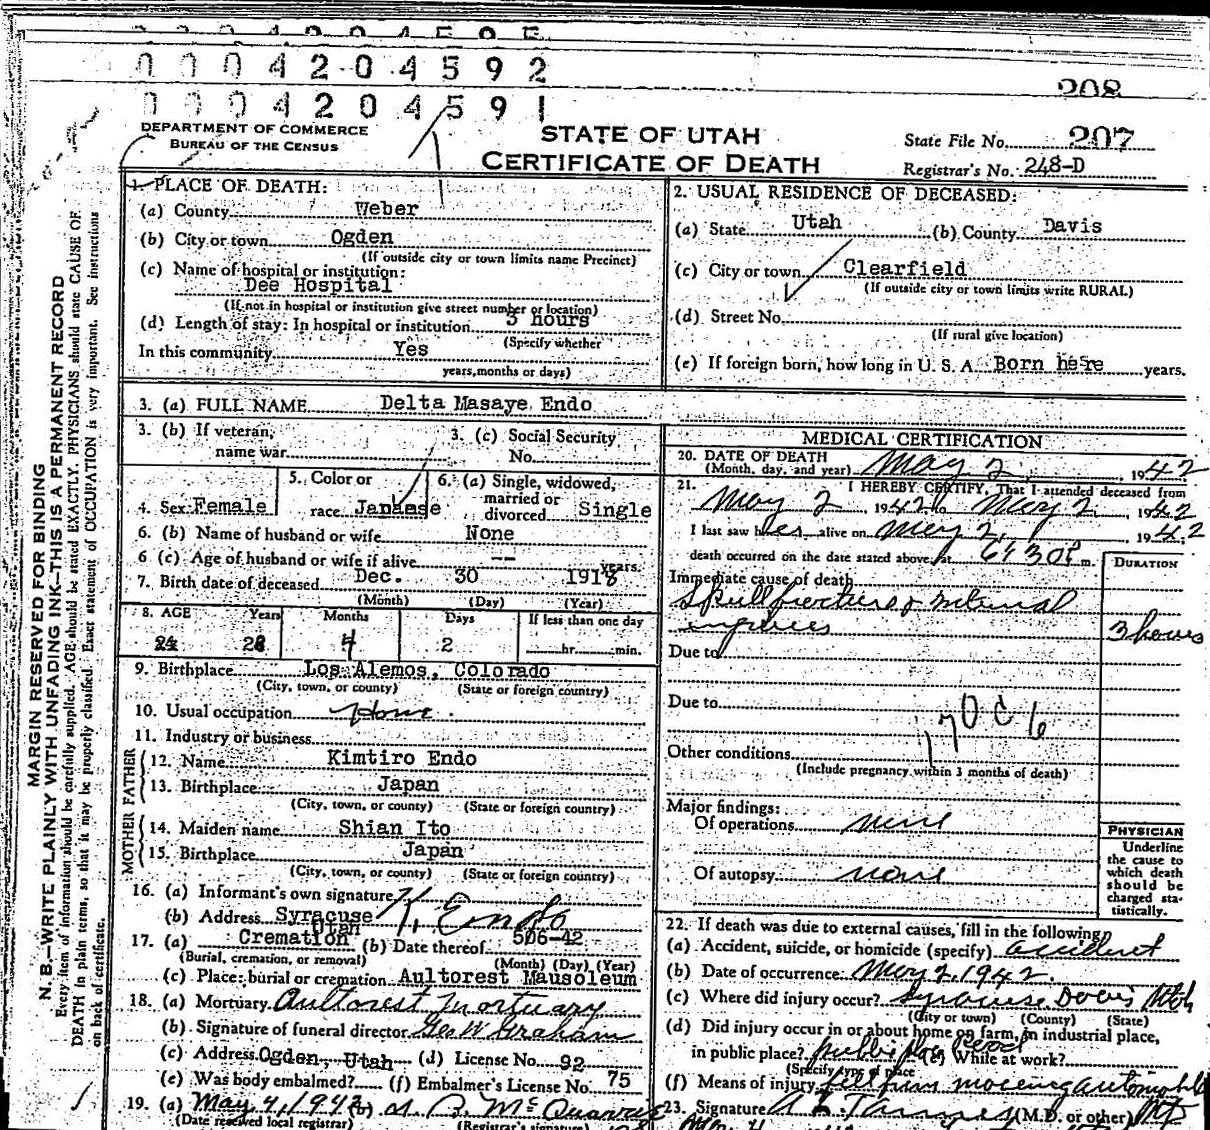 0 0 0 4 2 0 4 5 9 2
208
0 0 0 4 2 0 4 5 9 1
DEPARTMENT OF COMMERCE
BUREAU OF THE CENSUS
STATE OF UTAH
CERTIFICATE OF DEATH
State File No. 207
Registrar's No. 248-D
MARGIN RESERVED FOR BINDING
N. B.—WRITE PLAINLY WITH UNFADING INK—THIS IS A PERMANENT RECORD
Every item of information should be carefully supplied. AGE should be stated EXACTLY. PHYSICIANS should state CAUSE OF
DEATH in plain terms, so that it may be properly classified. Exact statement of OCCUPATION is very important. See instructions
on back of certificate.
1. PLACE OF DEATH:
(a) County Weber
(b) City or town Ogden
(If outside city or town limits name Precinct)
(c) Name of hospital or institution:
Dee Hospital
(If not in hospital or institution give street number or location)
(d) Length of stay: In hospital or institution 3 hours
(Specify whether
In this community Yes
years, months or days)
2. USUAL RESIDENCE OF DECEASED:
(a) State Utah (b) County Davis
(c) City or town Clearfield
(If outside city or town limits write RURAL)
(d) Street No.
(If rural give location)
(e) If foreign born, how long in U. S. A. Born here years.
3. (a) FULL NAME Delta Masaye Endo
3. (b) If veteran, name war
3. (c) Social Security No.
4. Sex Female
5. Color or race Japanese
6. (a) Single, widowed, married or divorced Single
6. (b) Name of husband or wife None
6 (c) Age of husband or wife if alive -- years.
7. Birth date of deceased Dec. 30 1918
(Month) (Day) (Year)
8. AGE Years Months Days If less than one day
4 2 hr. min.
9. Birthplace Los Alemos, Colorado
(City, town, or county) (State or foreign country)
10. Usual occupation Home.
11. Industry or business
FATHER
12. Name Kimtiro Endo
13. Birthplace Japan
(City, town, or county) (State or foreign country)
MOTHER
14. Maiden name Shian Ito
15. Birthplace Japan
(City, town, or county) (State or foreign country)
16. (a) Informant's own signature K. Endo
(b) Address Syracuse Utah
17. (a) Cremation (b) Date thereof 506-42
(Burial, cremation, or removal) (Month) (Day) (Year)
(c) Place: burial or cremation Aultorest Mausoleum
18. (a) Mortuary Aultorest Mortuary
(b) Signature of funeral director Geo W Graham
(c) Address Ogden, Utah (d) License No. 92
(e) Was body embalmed? (f) Embalmer's License No. 75
19. (a) May 4, 1942 (b)
(Date received local registrar) (Registrar's signature)
MEDICAL CERTIFICATION
20. DATE OF DEATH
(Month, day, and year) May 2, 1942
21. I HEREBY CERTIFY, That I attended deceased from
May 2 1942 to May 2, 1942
I last saw her alive on May 2, 1942
death occurred on the date stated above, at 6:30 P m.
DURATION
Immediate cause of death
Skull fracture & internal
injuries 3 hours
Due to
Due to
170 C 6
Other conditions
(Include pregnancy within 3 months of death)
Major findings:
Of operations none
Of autopsy none
PHYSICIAN
Underline
the cause to
which death
should be
charged sta-
tistically.
22. If death was due to external causes, fill in the following
(a) Accident, suicide, or homicide (specify) accident
(b) Date of occurrence May 2, 1942
(c) Where did injury occur? Syracuse Davis Utah
(City or town) (County) (State)
(d) Did injury occur in or about home on farm, in industrial place,
in public place? public place Road (e) While at work?
(Specify type of place
(f) Means of injury fell from moving automobile
23. Signature (M.D. or other) MD